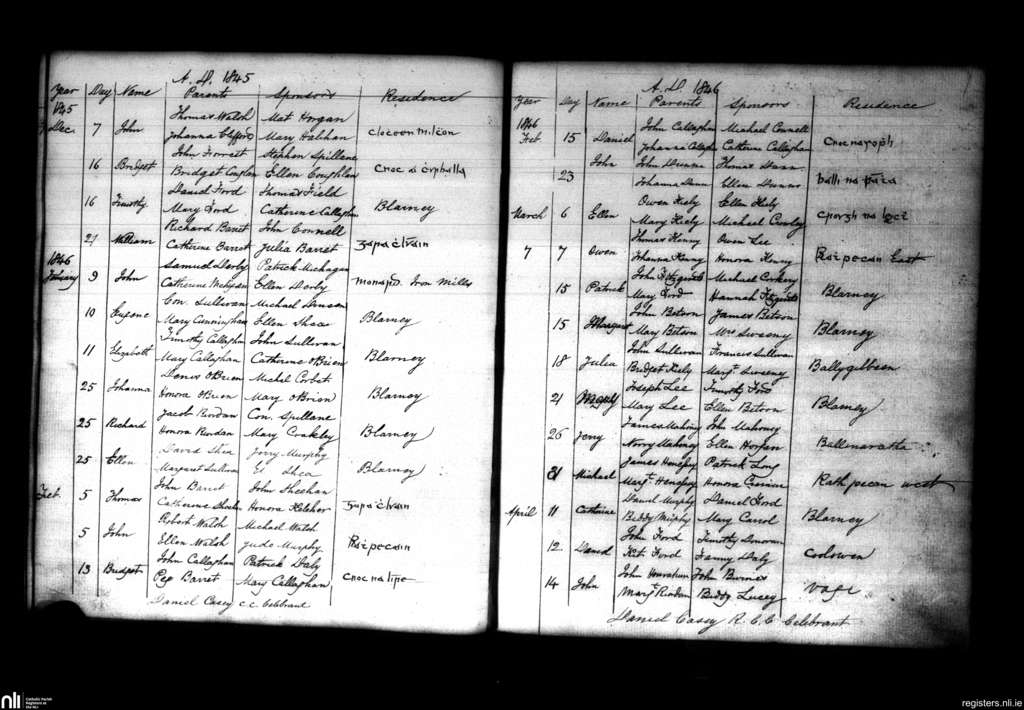 A. D. 1845
Year Day Name Parents Sponsors Residence
1845
Thomas Walsh Mat Horgan
Dec. 7 John Johanna Clifford Mary Halihan
John Forrest Stephen Spillane
16 Bridget Bridget Ellen Coughlan
Daniel Ford Thomas Field
16 Timothy Mary Ford Catherine Callaghan Blarney
Richard Barret John Connell
21 William Catherine Barret Julia Barret
1846
Samuel Derby Patrick
January 9 John Catherine Ellen Derby Iron Mills
Con. Sullivan Michael
10 Eugene Mary Cunningham Ellen Shea Blarney
Timothy Callaghan John Sullivan
11 Elizabeth Mary Callaghan Catherine OBrien Blarney
Denis OBrien Michel Corbet
25 Johanna Honora OBrien Mary OBrien Blarney
Jacob Riordan Con. Spillane
25 Richard Honora Riordan Mary Blarney
David Shea Jerry Murphy
25 Ellen Margaret Sullivan El Shea Blarney
John Barret John Sheehan
Feb. 5 Thomas Catherine Honora Keleher
Robert Walsh Michael Walsh
5 John Ellen Walsh Jude Murphy
John Callaghan Patrick Daly
13 Bridget Peg Barret Mary Callaghan
Daniel Casey c.c. Celebrant
A. D. 1846
Year Day Name Parents Sponsors Residence
1846
John Callaghan Michael Connell
Feb 15 Daniel Johanna Catherine Callaghan
John John Dunne Thomas Dunn
23 Johanna Dunn Ellen Dunne
Owen Hiely Ellen Hiely
March 6 Ellen Mary Hiely Michael Crowley
Thomas Henry Owen Lee
7 7 Owen Johanna Henry Honora Henry East
John Fitzgerald Michael Corkery
15 Patrick Mary Ford Hannah Fitzgerald Blarney
John Betson James Betson
15 Margaret Mary Betson Mrs Sweeny Blarney
John Sullivan Francis Sullivan
18 Julia Bridget Hiely Margt. Sweeney Ballygibbeen
Joseph Lee Timothy Ford
21 Mary Lee Ellen Betson Blarney
James Mahony John Mahoney
26 Jerry Norry Mahoney Ellen Horgan
James Patrick Long
31 Michael Margt. Honora Rathpecan west
Daniel Murphy Daniel Ford
April 11 Catherine Biddy Murphy Mary Carrol Blarney
John Ford Timothy Donovan
12 David Kit. Ford Fanny Daly Coolowen
John John Barnes
14 John Margt. Riordan Biddy Lucey
Daniel Casey R.C.C Celebrant
nli
Catholic Parish
Registers at
the NLI
registers.nli.ie